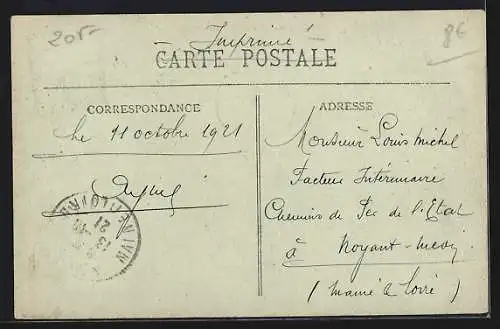 205-
Imprimé
86
CARTE POSTALE
CORRESPONDANCE
ADRESSE
Le 11 octobre 1921
Monsieur Louis Michel
Facteur Intérimaire
Chemins de Fer de l'Etat
à Noyant-Méon
(Maine & Loire)